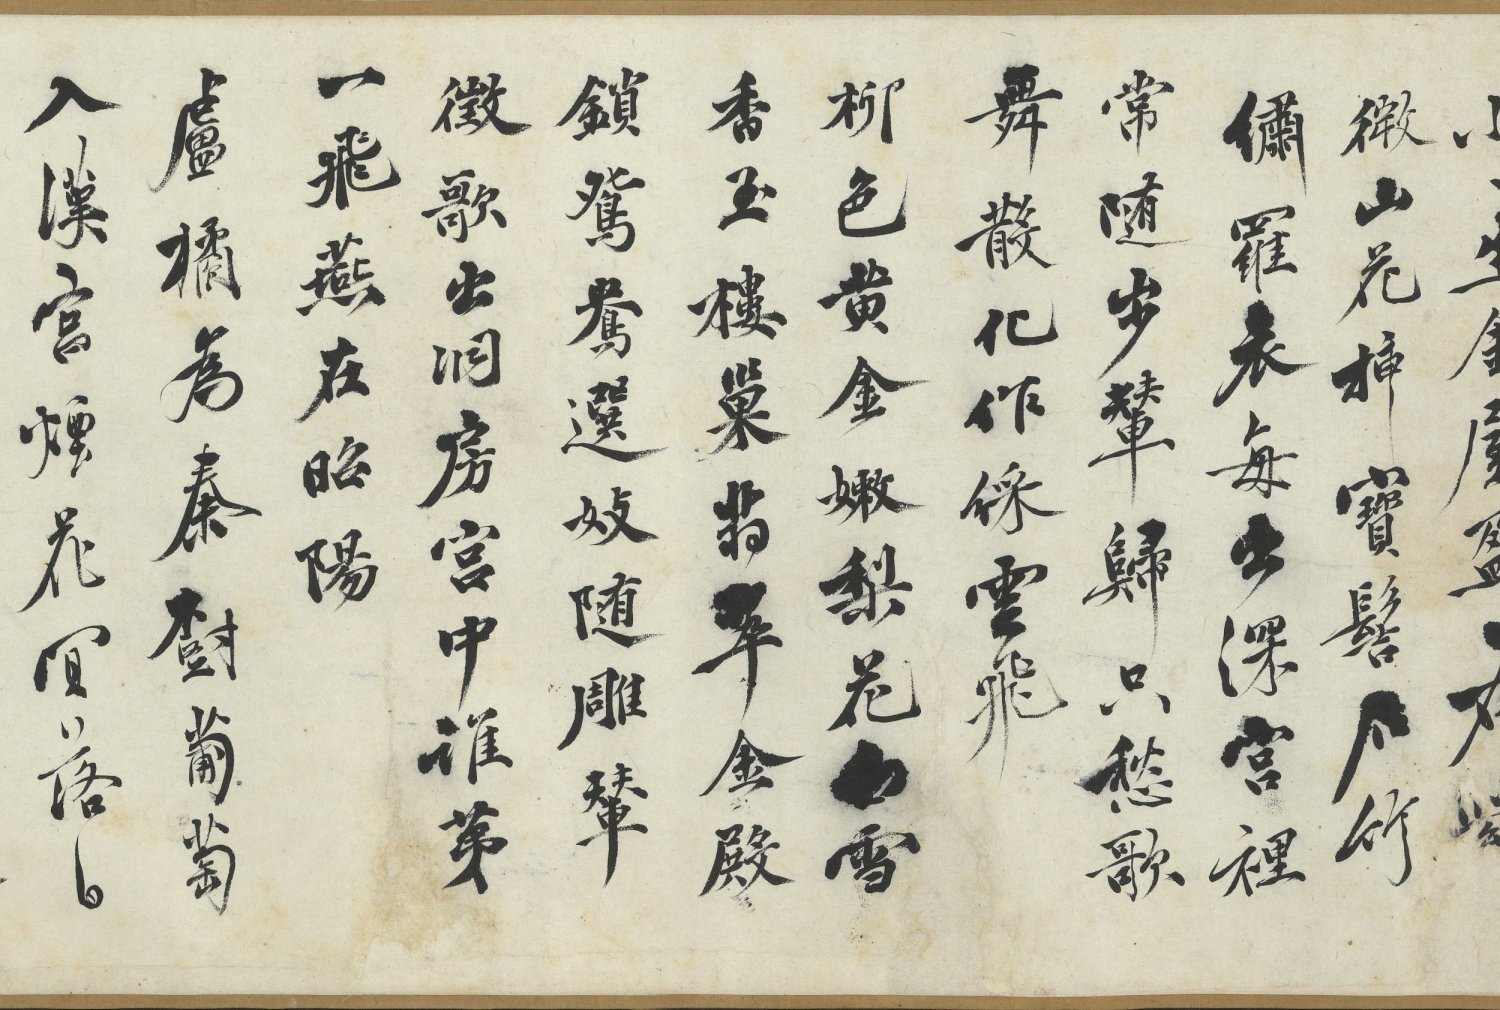 生金屋盈在
微山花插寶髻石竹
繡羅衣每出深宮裡
常隨步輦歸只愁歌
舞散化作綵雲飛
柳色黃金嫩梨花白雪
香玉樓巢翡翠金殿
鎖鴛鴦選妓隨雕輦
徵歌出洞房宮中誰第
一飛燕在昭陽
盧橘為秦樹葡萄
入漢宮煙花宜落日